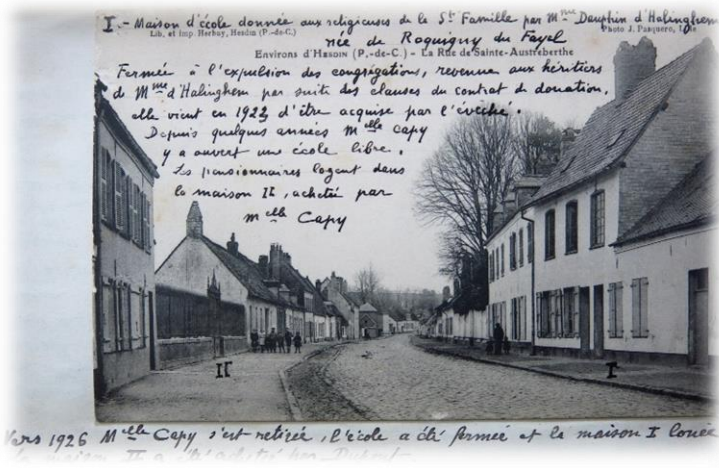 I.- Maison d'école donnée aux religieuses de la Ste Famille par Mme Dauphin d'Halinghem
Lib. et imp. Herbuy, Hesdin (P.-de-C.)
née de Roquigny du Fayel
Photo J. Pasquero, Lille
Environs d'HESDIN (P.-de-C.) - La Rue de Sainte-Austreberthe
Fermée à l'expulsion des congrégations, revenue aux héritiers
de Mme d'Halinghem par suite des clauses du contrat de donation,
elle vient en 1923 d'être acquise par l'évêché.
Depuis quelques années Melle Capy
y a ouvert une école libre.
Les pensionnaires logent dans
la maison II, achetée par
Melle Capy
II
I
Vers 1926 Melle Capy s'est retirée, l'école a été fermée et la maison I louée
la maison II a été achetée par